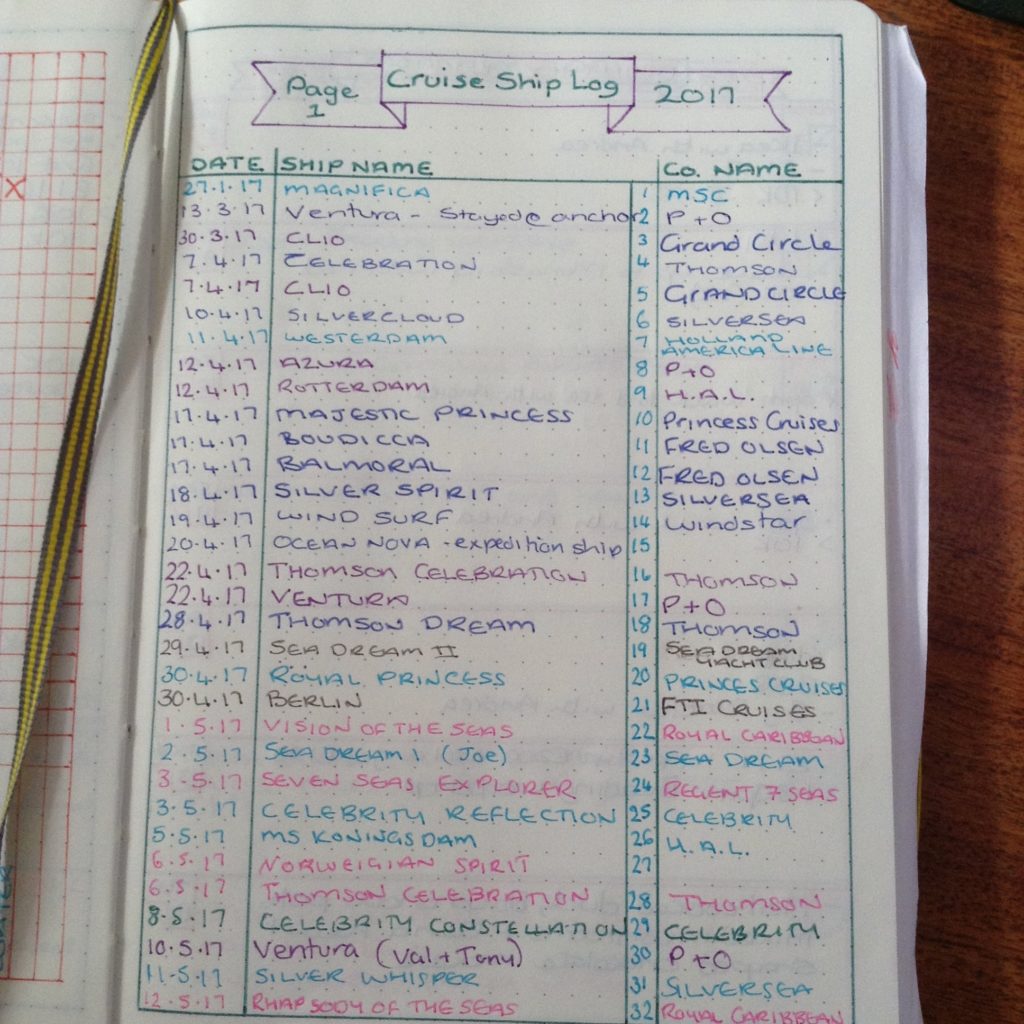 Page 1 Cruise Ship Log 2017
DATE SHIP NAME CO. NAME
27.1.17 MAGNIFICA 1 MSC
13.3.17 Ventura - Stayed @ anchor 2 P+O
30.3.17 CLIO 3 Grand Circle
7.4.17 CELEBRATION 4 THOMSON
7.4.17 CLIO 5 GRAND CIRCLE
10.4.17 SILVERCLOUD 6 SILVERSEA
11.4.17 WESTERDAM 7 HOLLAND
AMERICA LINE
12.4.17 AZURA 8 P+O
12.4.17 ROTTERDAM 9 H.A.L.
17.4.17 MAJESTIC PRINCESS 10 Princess Cruises
17.4.17 BOUDICCA 11 FRED OLSEN
17.4.17 BALMORAL 12 FRED OLSEN
18.4.17 SILVER SPIRIT 13 SILVERSEA
19.4.17 WIND SURF 14 Windstar
20.4.17 OCEAN NOVA - expedition ship 15
22.4.17 THOMSON CELEBRATION 16 THOMSON
22.4.17 VENTURA 17 P+O
28.4.17 THOMSON DREAM 18 THOMSON
29.4.17 SEA DREAM II 19 SEA DREAM
YACHT CLUB
30.4.17 ROYAL PRINCESS 20 PRINCES CRUISES
30.4.17 BERLIN 21 FTI CRUISES
1.5.17 VISION OF THE SEAS 22 ROYAL CARIBBEAN
2.5.17 SEA DREAM 1 (Joe) 23 SEA DREAM
3.5.17 SEVEN SEAS EXPLORER 24 REGENT 7 SEAS
3.5.17 CELEBRITY REFLECTION 25 CELEBRITY
5.5.17 MS KONINGSDAM 26 H.A.L.
6.5.17 NORWEIGIAN SPIRIT 27
6.5.17 THOMSON CELEBRATION 28 THOMSON
8.5.17 CELEBRITY CONSTELLATION 29 CELEBRITY
10.5.17 Ventura (Val + Tony) 30 P+O
11.5.17 SILVER WHISPER 31 SILVERSEA
12.5.17 RHAPSODY OF THE SEAS 32 ROYAL CARIBBEAN